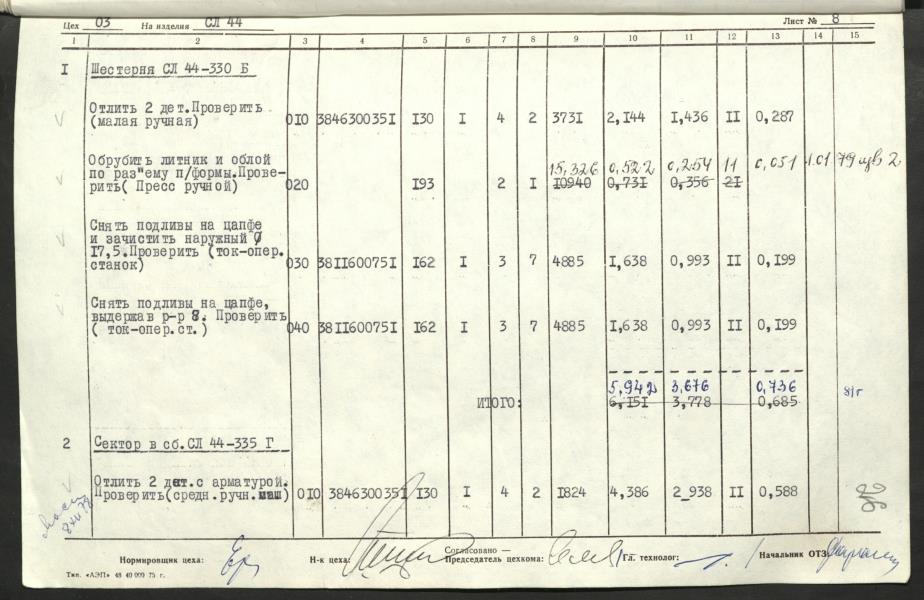 Цех 03 На изделия СЛ 44 Лист № 8
1 2 3 4 5 6 7 8 9 10 11 12 13 14 15
I Шестерня СЛ 44-330 Б
Отлить 2 дет.Проверить
(малая ручная) 010 384630035I I30 I 4 2 373I 2,I44 I,436 II 0,287
Обрубить литник и облой
по раз"ему п/формы.Прове- 15,326 0,522 0,254 11 0,051 1.01.79
рить( Пресс ручной) 020 I93 2 I I0940 0,73I 0,356 2I
Снять подливы на цапфе
и зачистить наружный
I7,5.Проверить (ток-опер.
станок) 030 38II60075I I62 I 3 7 4885 I,638 0,993 II 0,I99
Снять подливы на цапфе,
выдержав р-р 8. Проверить
( ток-опер.ст.) 040 38II60075I I62 I 3 7 4885 I,638 0,993 II 0,I99
5,942 3,676 0,736
ИТОГО: 6,I5I 3,778 0,685
2 Сектор в сб.СЛ 44-335 Г
Отлить 2 дет.с арматурой.
Проверить(средн.ручн.маш) 0I0 384630035I I30 I 4 2 I824 4,386 2_938 II 0,588
Нормировщик цеха: Н-к цеха: Согласовано —
Председатель цехкома: Гл. технолог: Начальник ОТЗ
Тип. «АЭП» 48 40 000 75 г.